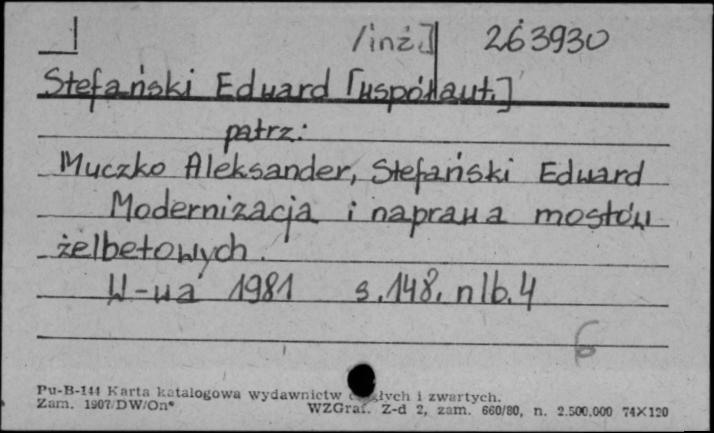 /inż.] 263930
Stefański Eduard [współaut.]
patrz:
Muczko Aleksander, Stefański Eduard
Modernizacja i naprawa mostów
żelbetowych.
W-wa 1981 s.148. nlb.4
6
Pu-B-144 Karta katalogowa wydawnictw i zwartych.
Zam. 1907/DW/On* WZGraf. Z-d 2, zam. 660/80, n. 2.500.000 74×120